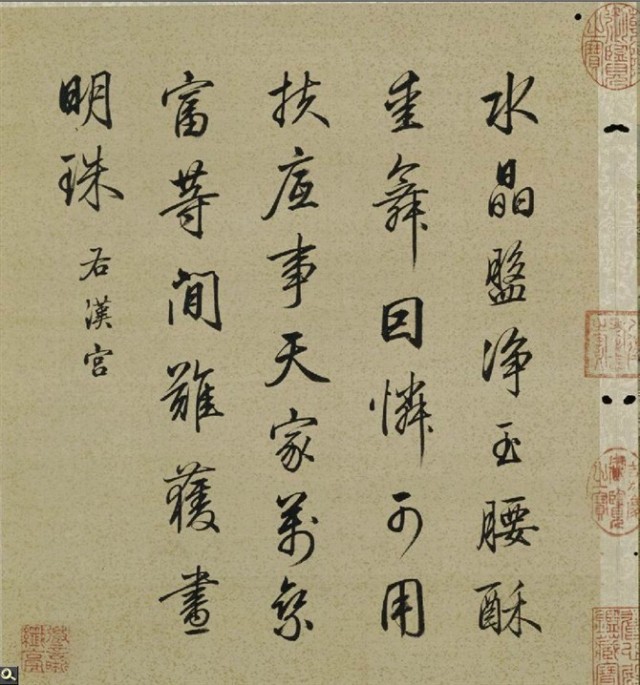 水晶盤净玉腰酥
重舞因憐可用
扶底事天家萬乘
富等間難獲畫
明珠
右漢宮